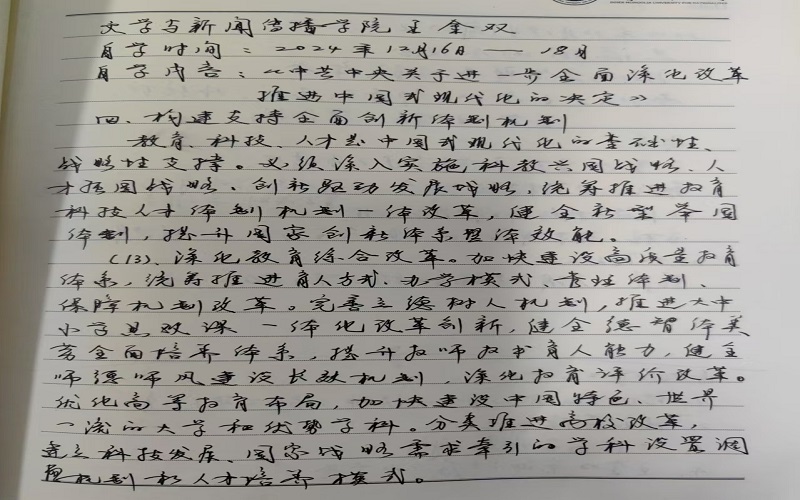 文学与新闻传播学院 王金双
自学时间：2024年12月16日——18日
自学内容：《中共中央关于进一步全面深化改革
推进中国式现代化的决定》
四、构建支持全面创新体制机制
教育、科技、人才是中国式现代化的基础性、
战略性支撑。必须深入实施科教兴国战略、人
才强国战略、创新驱动发展战略，统筹推进教育
科技人才体制机制一体改革，健全新型举国
体制，提升国家创新体系整体效能。
（13）、深化教育综合改革。加快建设高质量教育
体系，统筹推进育人方式、办学模式、管理体制、
保障机制改革。完善立德树人机制，推进大中
小学思政课一体化改革创新，健全德智体美
劳全面培养体系，提升教师教书育人能力，健全
师德师风建设长效机制，深化教育评价改革。
优化高等教育布局，加快建设中国特色、世界
一流的大学和优势学科。分类推进高校改革，
建立科技发展、国家战略需求牵引的学科设置调
整机制和人才培养模式。